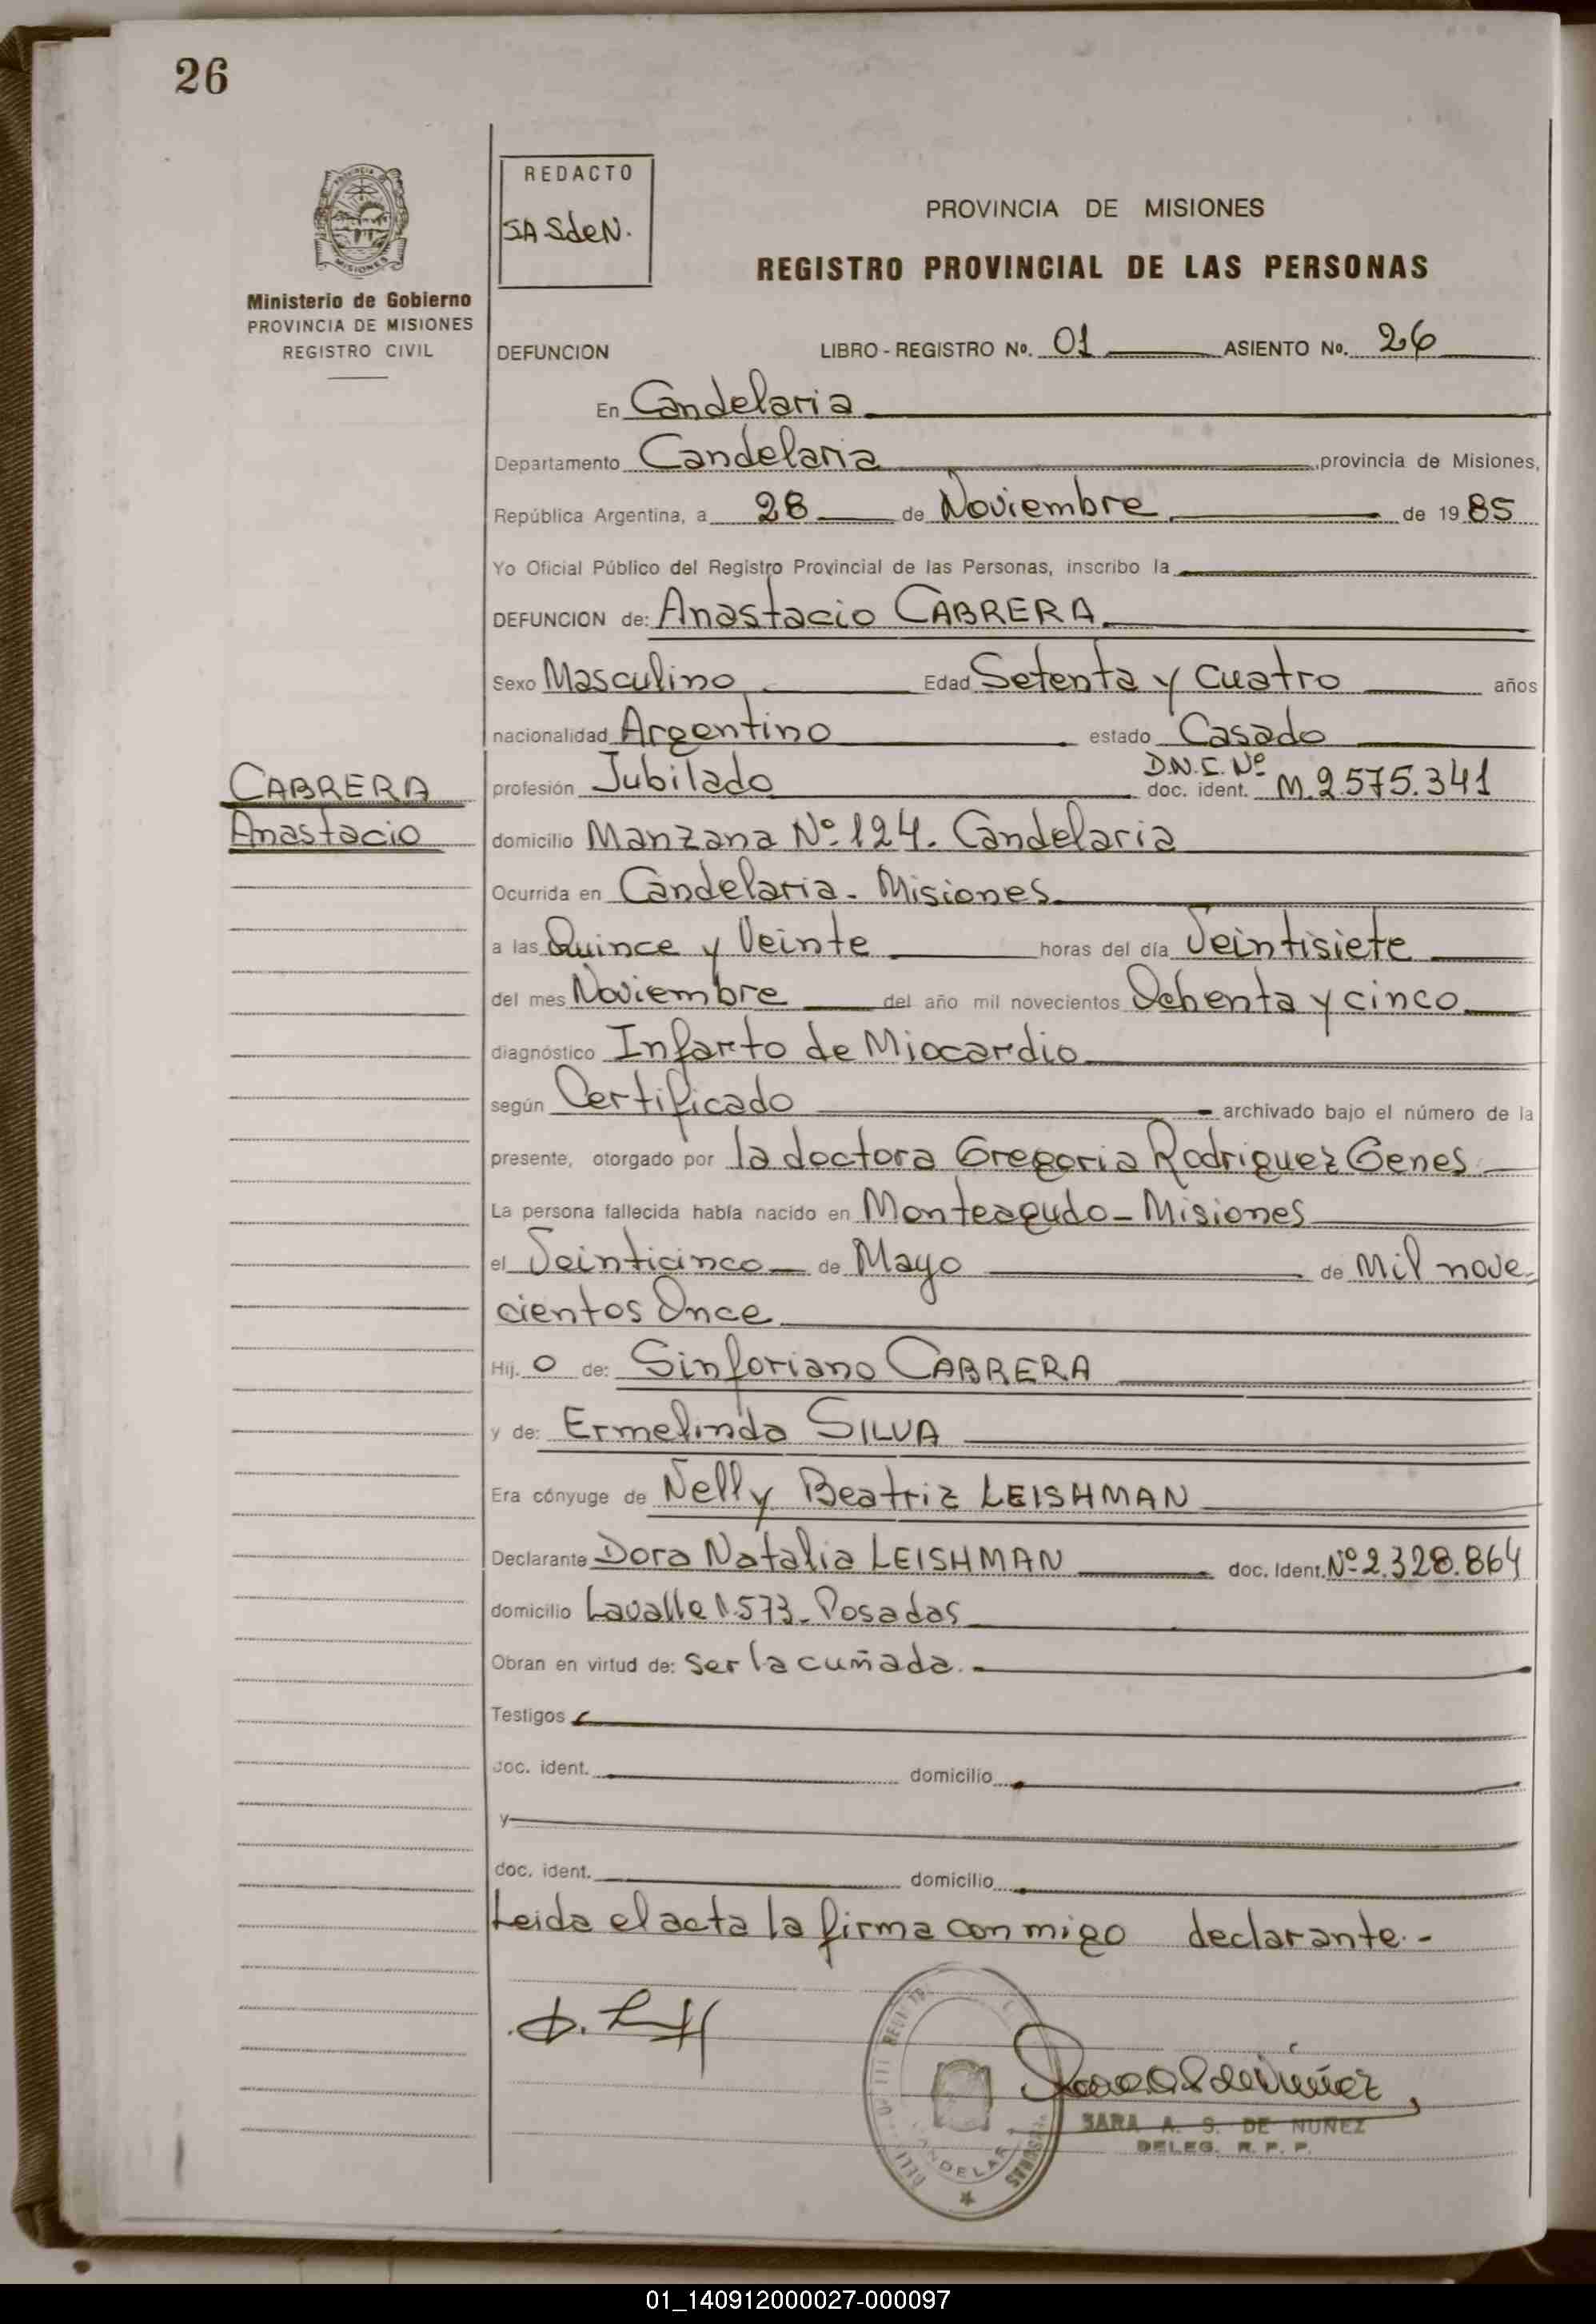 26
REDACTO
SASdeN.
PROVINCIA DE MISIONES
REGISTRO PROVINCIAL DE LAS PERSONAS
PROVINCIA
MISIONES
Ministerio de Gobierno
PROVINCIA DE MISIONES
REGISTRO CIVIL
DEFUNCION LIBRO - REGISTRO No. 01 ASIENTO No. 26
En Candelaria
Departamento Candelaria provincia de Misiones,
República Argentina, a 28 de Noviembre de 1985
Yo Oficial Público del Registro Provincial de las Personas, inscribo la
DEFUNCION de: Anastacio CABRERA
Sexo Masculino Edad Setenta y Cuatro años
nacionalidad Argentino estado Casado
D.N.I. Nº
profesión Jubilado doc. ident. M.2.575.341
CABRERA
Anastacio
domicilio Manzana Nº 124. Candelaria
Ocurrida en Candelaria - Misiones
a las Quince y Veinte horas del día Veintisiete
del mes Noviembre del año mil novecientos Ochenta y cinco
diagnóstico Infarto de Miocardio
según Certificado archivado bajo el número de la
presente, otorgado por la doctora Gregoria Rodriguez Genes
La persona fallecida había nacido en Monteagudo - Misiones
el Veinticinco de Mayo de Mil nove-
cientos Once
Hij. o de: Sinforiano CABRERA
y de: Ermelinda SILVA
Era cónyuge de Nelly Beatriz LEISHMAN
Declarante Dora Natalia LEISHMAN doc. Ident. Nº 2.328.864
domicilio Lavalle 1.573 - Posadas
Obran en virtud de: ser la cuñada.-
Testigos
doc. ident. domicilio
y
doc. ident. domicilio
Leida el acta la firma conmigo declarante.-
SARA A. S. DE NUÑEZ
DELEG. R. P. P.
01_140912000027-000097